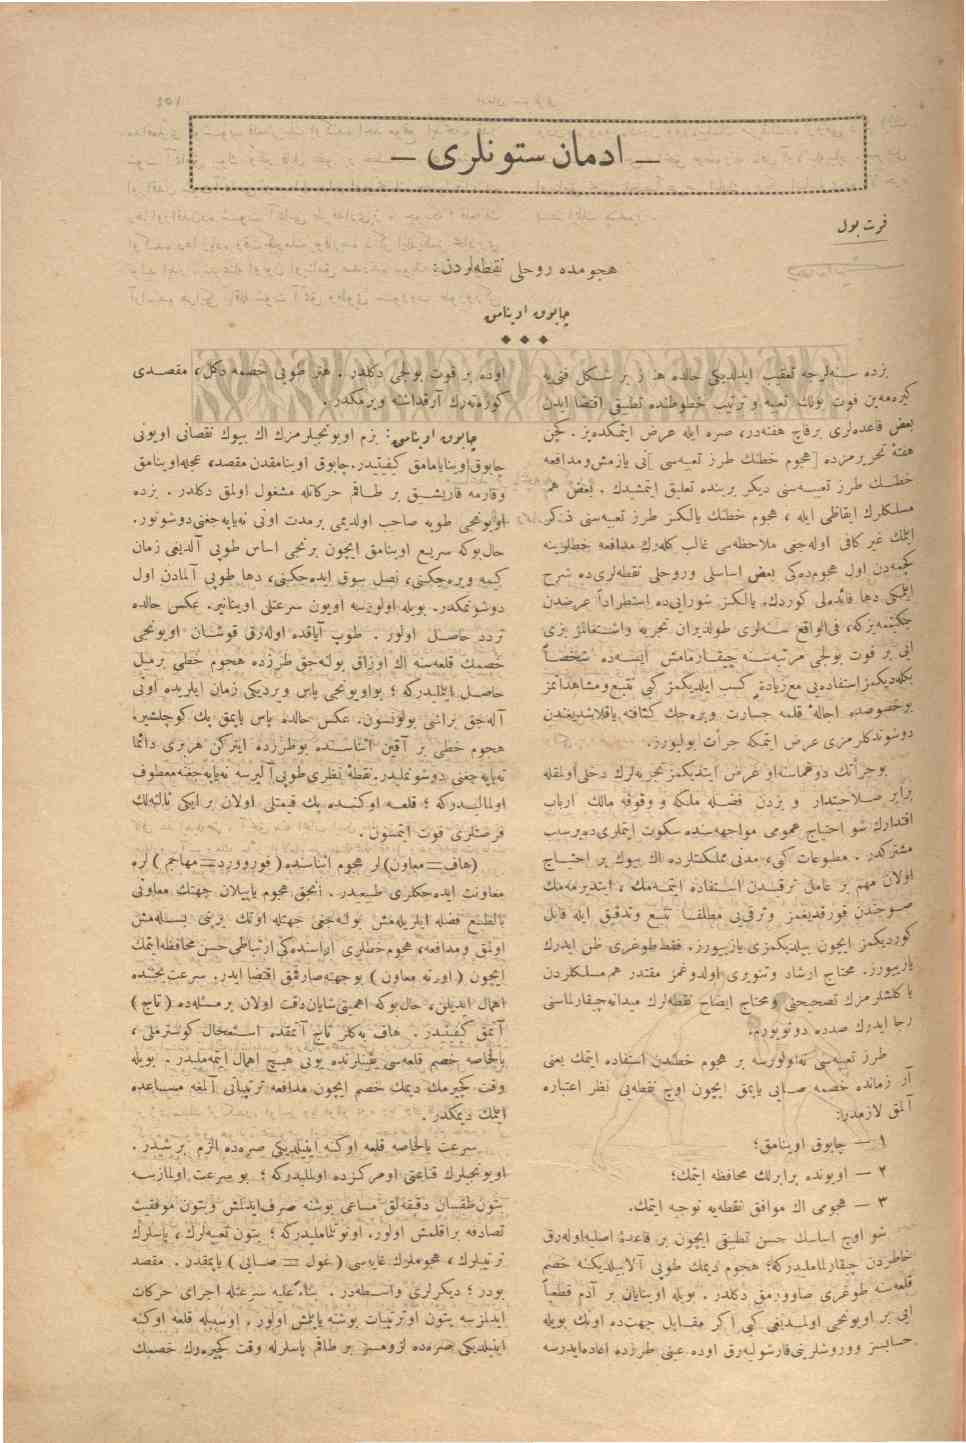 — ادمان ستونلری —
فوت بول
هجومده روحی نقطه‌لردن:
چابوق اویناس
بزده سنه‌لرجه تعقیب ایدلدیکی حالده هنوز بر شکل فنی‌یه
کیره‌مه‌ین فوت بولك تعبیه و ترتیب خطوطنده تطبیقی اقتضا ایدن
بعض قاعده‌لری برقاچ هفته‌در، صره ایله عرض ایتمکده‌یز. کچن
هفتهٔ تحریرمزده [هجوم خطنك طرز تعبیه‌سی] نی یازمش ومدافعه
خطنك طرز تعبیه‌سنی دیکر برینده تعلیق ایتمشیدك. بعض هم
مسلکلرك ایقاظی ایله، هجوم خطنك یالکز طرز تعبیه‌سنی ذکر
ایتمك غیر کافی اوله‌جغی ملاحظه‌سی غالب کله‌رك مدافعه خطلرینه
کچمه‌دن اول هجومده‌کی بعض اساسلی وروحلی نقطه‌لری‌ده شرح
ایتمکی دها فائده‌لی کوردك. یالکز شوراینی‌ده استطراداً عرضدن
چکینمه‌یزکه، فی‌الواقع سنه‌لری طولدیران تجربه واشتغالمز بزی
ایی بر فوت بولجی مرتبه‌سنه چیقارمامش ایسه‌ده شخصاً
بکله‌دیکمز استفاده‌یی مع‌زیادةٍ کسب ایلدیکمز کبی تتبع ومشاهداتمز
بوخصوصده اجالهٔ قلمه جسارت ویره‌جك کثافته یاقلاشدیغندن
دوشوندکلرمزی عرض ایتمکه جرأت بولیورز.
بوجرأتك دوغماسنه‌او عرض ایتدیکمز تجربه‌لرك دخلی اولمقله
برابر صلاحتدار و بزدن فضله ملکه و وقوفه مالك ارباب
اقتدارك شو احتیاج عمومی مواجهه‌سنده سکوت ایتملری‌ده برسبب
مشترکدر. مطبوعات کبی، مدنی مملکتلرده اك بیوك بر احتیاج
اولان مهم بر عامل ترقیدن استفاده ایتمه‌مك، ایتدیرمه‌مك
صوچندن قورقدیغمز وترقی‌یی مطلقا تتبع وتدقیق ایله قابل
کوردیکمز ایچون بیلدیکمزی یازیورز. فقط طوغری ظن ایدرك
یازییورز. محتاج ارشاد وتنویری اولدوغمز مقتدر هم مسلکلردن
یاکلشلرمزك تصحیحنی ومحتاج ایضاح نقطه‌لرك میدانه چیقارلماسنی
رجا ایدرك صدده دونویورم.
طرز تعبیه‌سی نه‌اولورسه بر هجوم خطندن استفاده ایتمك یعنی
آز زمانده خصمه صایی یاپمق ایچون اوچ نقطه‌یی نظر اعتباره
آلمق لازمدر:
۱ — چابوق اوینامق؛
۲ — اویونده برابرلك محافظه ایتمك؛
۳ — هجومی اك موافق نقطه‌یه توجیه ایتمك.
شو اوچ اساسك حسن تطبیقی ایچون بر قاعدهٔ اصلیه‌اوله‌رق
خاطردن چیقارلماملیدرکه؛ هجوم دیمك طوپی آلابیلدیکنه خصم
قلعه‌سنه طوغری صاوورمق دکلدر. بویله اوینایان بر آدم قطعیاً
ایی بر اویونجی اولمدیغی کبی اکر مقابل جهتده اونك بویله
حسابسز ووروشلرینی قارشولیه‌رق اوده عینی طرزده اعاده‌ایدرسه
اوده بر فوت بولجی دکلدر. هنر طوپی خصمه دکل، مقصدی
کوزه‌ته‌رك آرقداشنه ویرمکدر.
چابوق اویناس: بزم اویونجیلرمزك اك بیوك نقصانی اویونی
چابوق‌اوینایامامق کیفیتیدر. چابوق اوینامقدن مقصد، عجله‌اوینامق
وقارمه قاریشیق بر طاقم حرکاتله مشغول اولمق دکلدر. بزده
اویونجی طوپه صاحب اولدیمی برمدت اونی نه‌یاپه‌جغنی دوشونور.
حال‌بوکه سریع اوینامق ایچون برنجی اساس طوپی آلدیغی زمان
کیمه ویره‌جکنی، نصل سوق ایده‌جکنی، دها طوپی آلمادن اول
دوشونمکدر. بویله اولورسه اویون سرعتلی اوینانیر. عکس حالده
تردد حاصل اولور. طوپ آیاقده اوله‌رق قوشان اویونجی
خصمك قلعه‌سنه اك اوزاق بولنه‌جق طرزده هجوم خطی برمیل
حاصل ایتملیدرکه؛ بواویونجی پاس ویردیکی زمان ایلریده اونی
آله‌جق برانی بولونسون. عکس حالده پاس یاپمق پك کوچلشیر.
هجوم خطی بر آقین اثناسنده بوطرزده ایترکن هربری دائما
نه‌یاپه‌جغنی دوشونملیدر. نقطهٔ نظری طوپی آلیرسه نه‌یاپه‌جغنه‌معطوف
اولمالیدرکه؛ قلعه اوکنده پك قیمتلی اولان بر ایکی ثالثه‌لك
فرصتلری فوت ایتمسون.
(هاف=معاون) لر هجوم اثناسنده (فوروورد=مهاجم) لره
معاونت ایده‌جکلری طبیعیدر. آنجق هجوم یاپیلان جهتك معاونی
بالطبع فضله ایلریله‌مش بولنه‌جغی جهتله اونك یرینی بسله‌مش
اولمق ومدافعه، هجوم‌خطلری آراسنده‌کی ارتباطی حسن محافظه‌ایتمك
ایچون (اورته معاون) بوجهته‌صارقمق اقتضا ایدر. سرعت بحثنده
اهمال ایدیلن، حال‌بوکه اهمیتی شایان‌دقت اولان برمسئله‌ده (تاج)
آتمق کیفیتیدر. هاف بك‌لر تاج آتمقده استعجال کوسترملی،
بالخاصه خصم قلعه‌سی یقینلرنده بونی هیچ اهمال ایتمه‌ملیدر. بویله
وقت کچیرمك دیمك خصم ایچون مدافعه ترتیباتی آلمغه مساعده
ایتمك دیمکدر.
سرعت بالخاصه قلعه اوکنه اینیلدیکی صره‌ده الزم برشیدر.
اویونجیلرك قناعتی اومرکزده اولملیدرکه؛ بو سرعت اولمازسه
بتون طقسان دقیقه‌لق مساعی بوشنه صرف‌ایدلمش وبتون موفقیت
تصادفه براقلمش اولور. اونوتماملیدرکه؛ بتون تعبیه‌لرك، پاسلرك
ترتیبلرك، هجوملرك غایه‌سی (غول = صایی) یاپمقدر. مقصد
بودر؛ دیکرلری واسطه‌در. بناءً علیه سرعتله اجرای حرکات
ایدلمزسه بتون اوترتیبات بوشنه یاپلمش اولور. اوسبیله قلعه اوکنه
اینیلدیکی صره‌ده لزومسز بر طاقم پاسلرله وقت کچیره‌رك خصمك